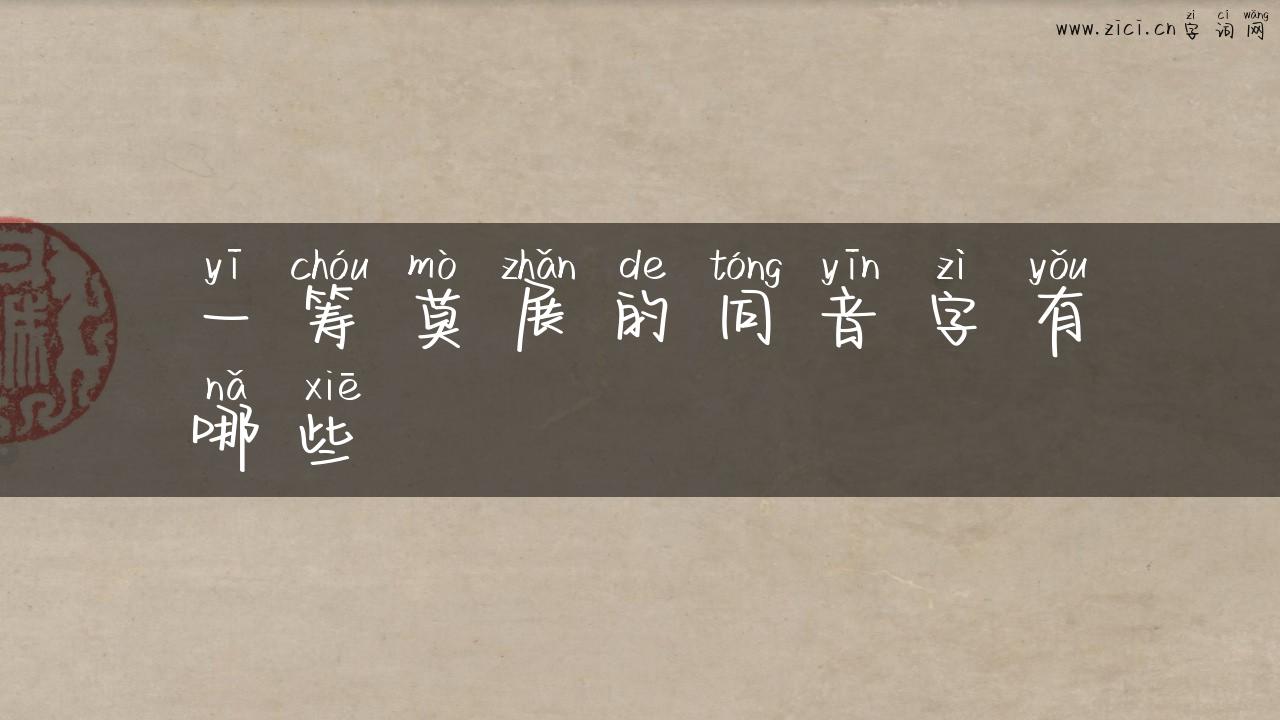 zì cí wǎng
www.zici.cn 字 词 网
yī chóu mò zhǎn de tóng yīn zì yǒu
一 筹 莫 展 的 同 音 字 有
nǎ xiē
哪 些